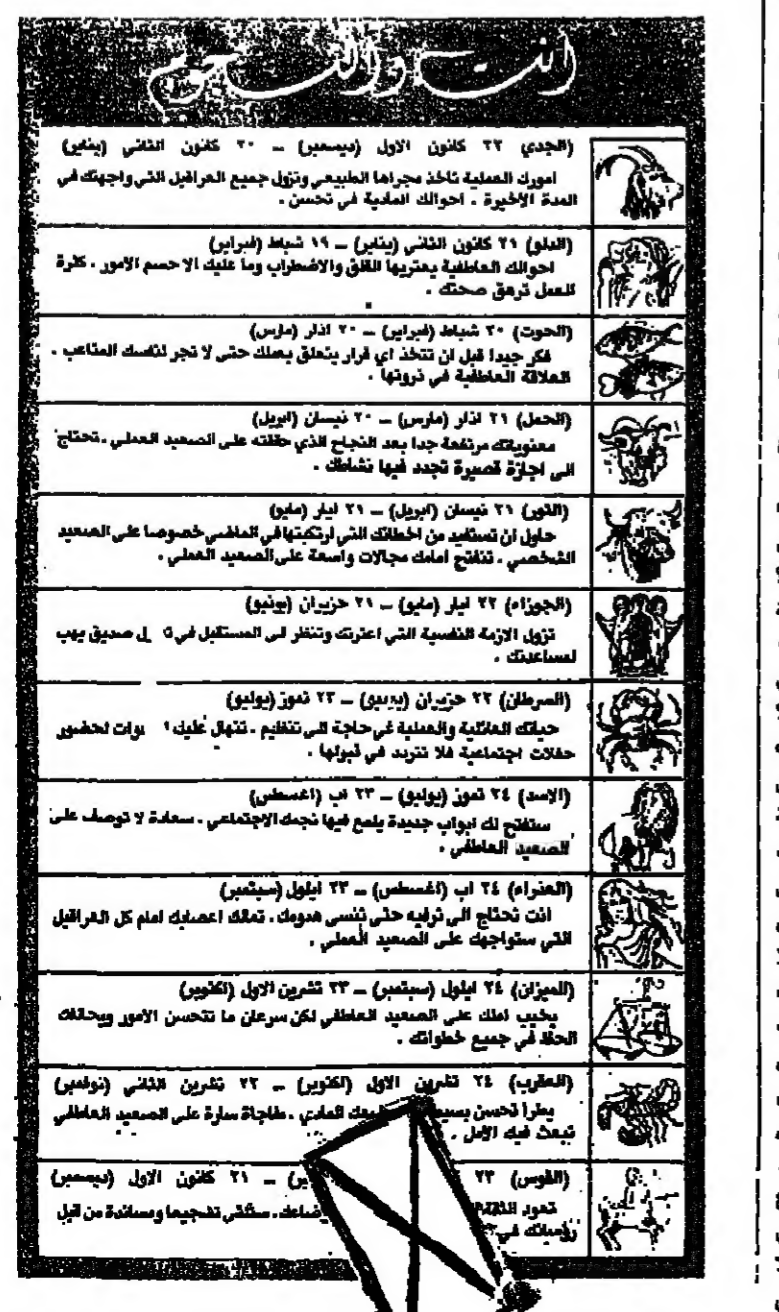 انت والنجوم
(الجدي) ٢٢ كانون الاول (ديسمبر) – ٢٠ كانون الثاني (يناير)
امورك العملية تاخذ مجراها الطبيعي وتزول جميع العراقيل التي واجهتك في
المدة الاخيرة . احوالك المادية في تحسن .
(الدلو) ٢١ كانون الثاني (يناير) – ١٩ شباط (فبراير)
احوالك العاطفية يعتريها القلق والاضطراب وما عليك الا حسم الامور . كثرة
العمل ترهق صحتك .
(الحوت) ٢٠ شباط (فبراير) – ٢٠ اذار (مارس)
فكر جيدا قبل ان تتخذ اي قرار يتعلق بعملك حتى لا تجر لنفسك المتاعب .
العلاقة العاطفية في ذروتها .
(الحمل) ٢١ اذار (مارس) – ٢٠ نيسان (ابريل)
معنوياتك مرتفعة جدا بعد النجاح الذي حققته على الصعيد العملي . تحتاج
الى اجازة قصيرة تجدد فيها نشاطك .
(الثور) ٢١ نيسان (ابريل) – ٢١ ايار (مايو)
حاول ان تستفيد من اخطائك التي ارتكبتها في الماضي خصوصا على الصعيد
الشخصي . تنفتح امامك مجالات واسعة على الصعيد العملي .
(الجوزاء) ٢٢ ايار (مايو) – ٢١ حزيران (يونيو)
تزول الازمة النفسية التي اعترتك وتنظر الى المستقبل في صديق يهب
لمساعدتك .
(السرطان) ٢٢ حزيران (يونيو) – ٢٣ تموز (يوليو)
حياتك العائلية والعملية في حاجة الى تنظيم . تنهال عليك لحضور
حفلات اجتماعية فلا تتردد في قبولها .
(الاسد) ٢٤ تموز (يوليو) – ٢٣ اب (اغسطس)
ستفتح لك ابواب جديدة يلمع فيها نجمك الاجتماعي . سعادة لا توصف على
الصعيد العاطفي .
(العذراء) ٢٤ اب (اغسطس) – ٢٣ ايلول (سبتمبر)
انت تحتاج الى ترفيه حتى تنسى همومك . تمالك اعصابك امام كل العراقيل
التي ستواجهك على الصعيد العملي .
(الميزان) ٢٤ ايلول (سبتمبر) – ٢٣ تشرين الاول (اكتوبر)
يخيب املك على الصعيد العاطفي لكن سرعان ما تتحسن الامور ويحالفك
الحظ في جميع خطواتك .
(العقرب) ٢٤ تشرين الاول (اكتوبر) – ٢٢ تشرين الثاني (نوفمبر)
يطرا تحسن المادي . مفاجاة سارة على الصعيد العاطفي
تبعث فيك الامل .
(القوس) ٢٣ – ٢١ كانون الاول (ديسمبر)
تعود الثقة ستلقى تشجيعا ومساندة من قبل
رؤسائك في